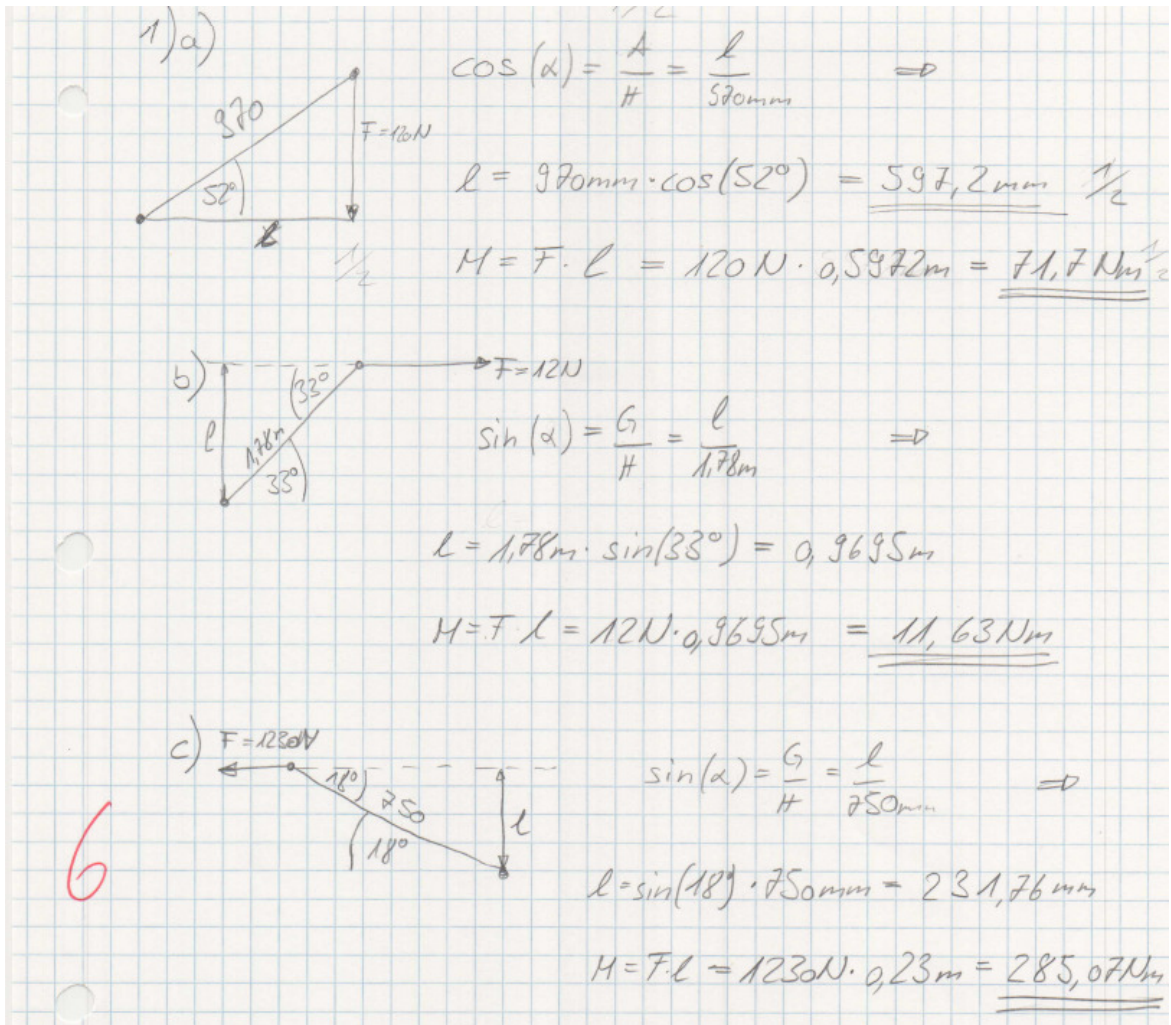 1) a)
1/2
cos (α) = A/H = l/970mm ⇒
970
F = 120N
52°
l
l = 970mm · cos(52°) = 597,2mm 1/2
1/2
M = F · l = 120N · 0,5972m = 71,7Nm 1/2
b)
F = 12N
33°
l
1,78m
33°
sin (α) = G/H = l/1,78m ⇒
l = 1,78m · sin(33°) = 0,9695m
M = F · l = 12N · 0,9695m = 11,63Nm
c)
F = 1230N
18°
750
l
18°
sin(α) = G/H = l/750mm ⇒
6
l = sin(18°) · 750mm = 231,76mm
M = F · l = 1230N · 0,23m = 285,07Nm